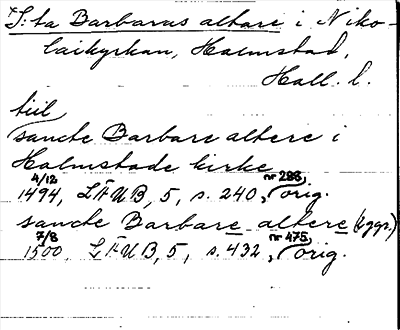 S:ta Barbaras altare i Niko-
laikyrkan, Halmstad,
Hall. l.
till
sancte Barbare altere i
Halmstade kirke
4/12 1494, LÄUB, 5, s. 240, nr 288, orig.
sancte Barbare altere (2 ggr)
7/8 1500, LÄUB, 5, s. 432, nr 475, orig.